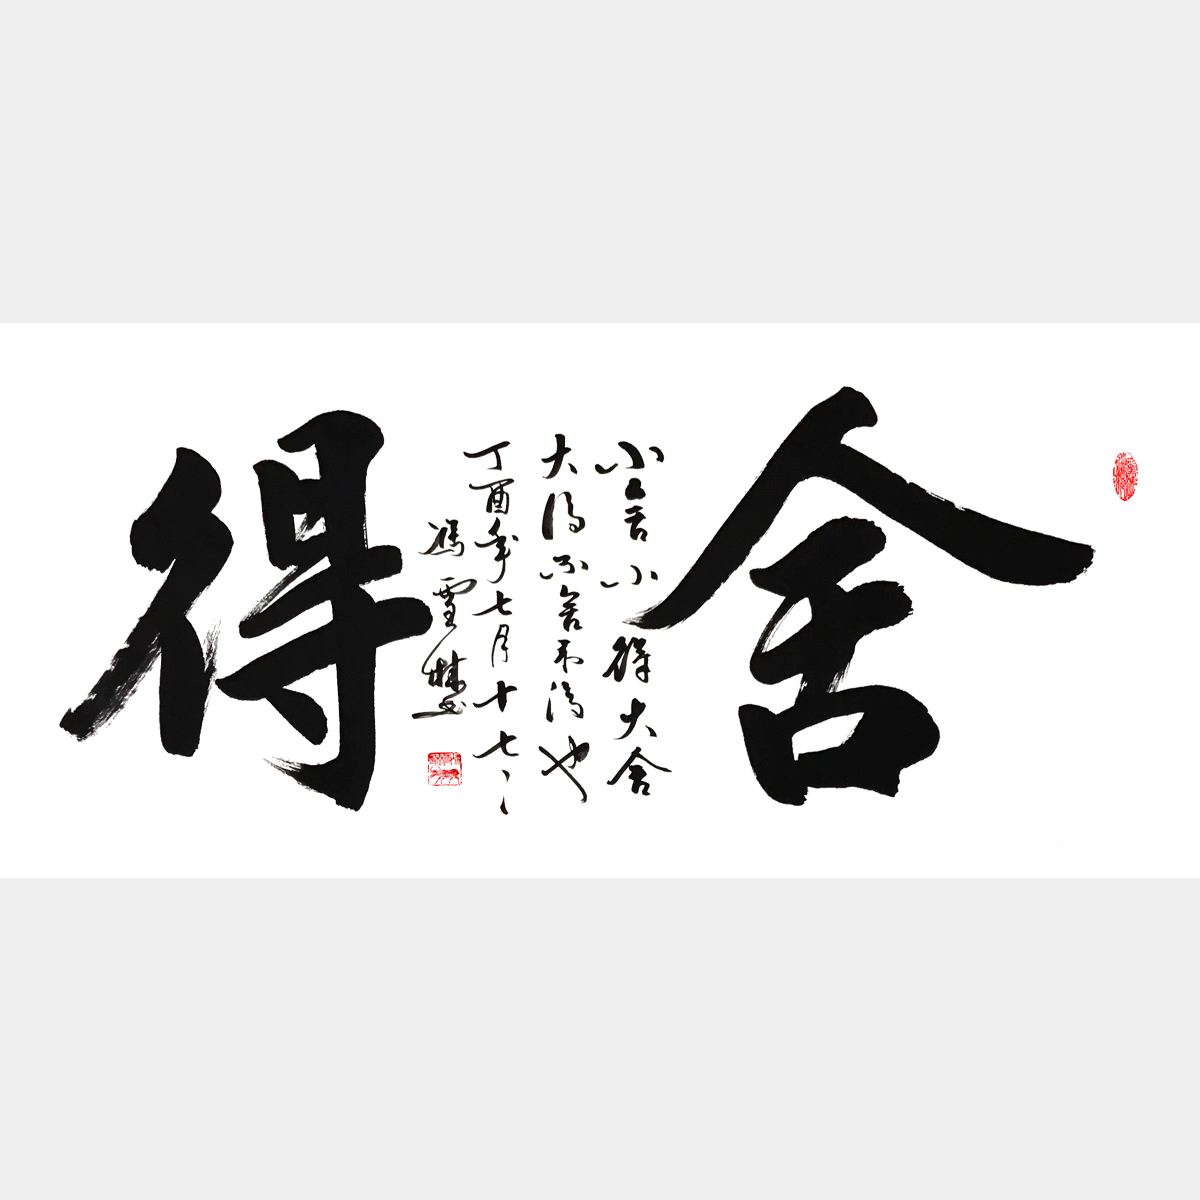 舍得
小舍小得大舍
大得不舍不得也
丁酉年七月十七日
馮雪林書